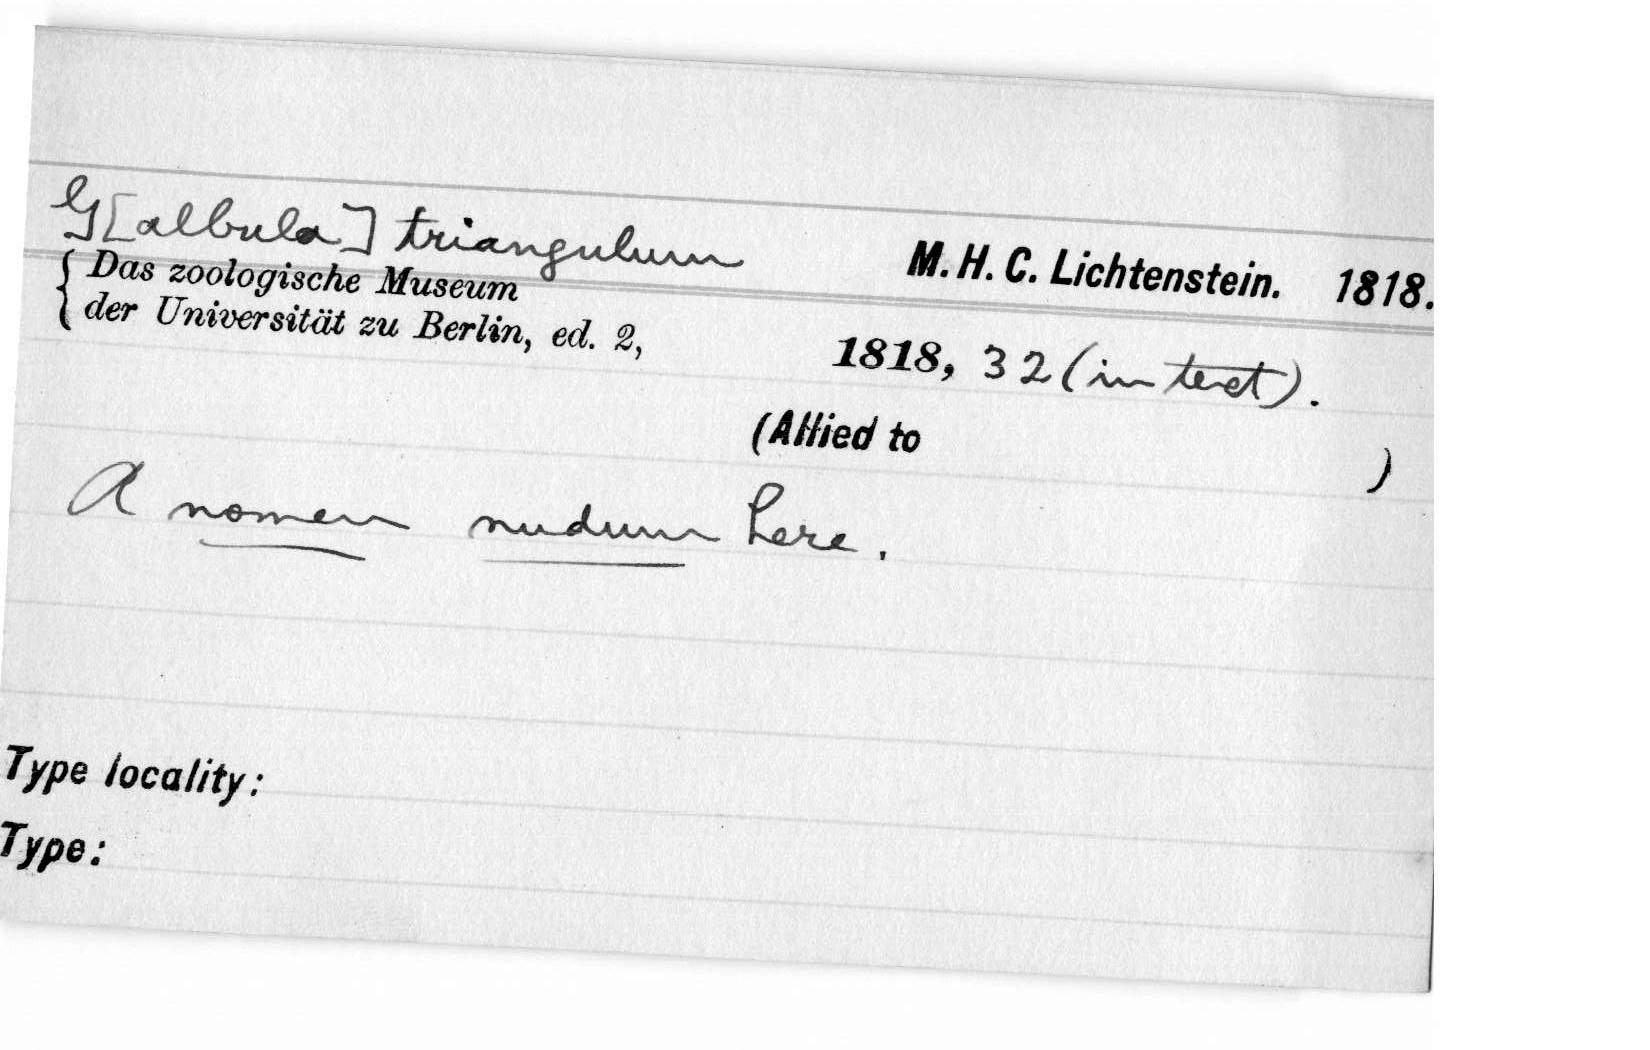 G[albula] triangulum M. H. C. Lichtenstein. 1818.
{ Das zoologische Museum
der Universität zu Berlin, ed. 2, 1818, 32 (in text).
(Allied to )
A nomen nudum here.
Type locality:
Type: